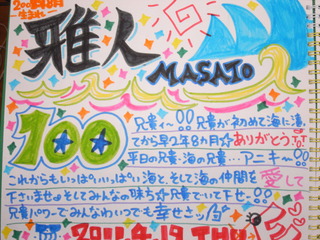 雅人
MASATO
100
兄貴ィ〜!! 兄貴が初めて海に湧い
てから早2年8ヵ月☆ありがとう
平日の兄貴・海の兄貴…アニキ〜!!
これからもいっぱいいっぱい海と、そして海の仲間を愛して
下さいませ そしてみんなの味ち☆兄貴でいて下せ〜!!
兄貴パワーでみんなわいつでも幸せさッ
2011.4.19 THU